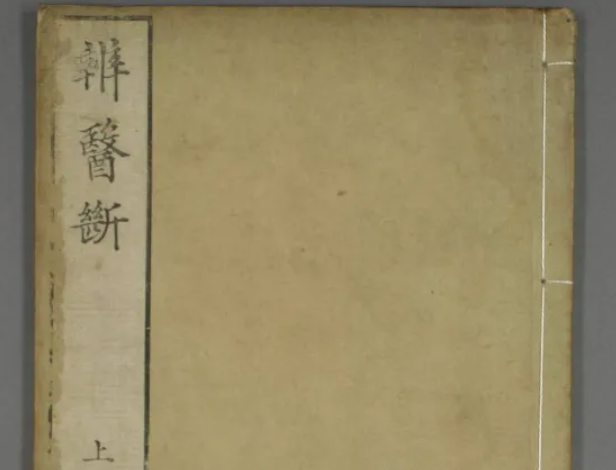 辨醫斷
上